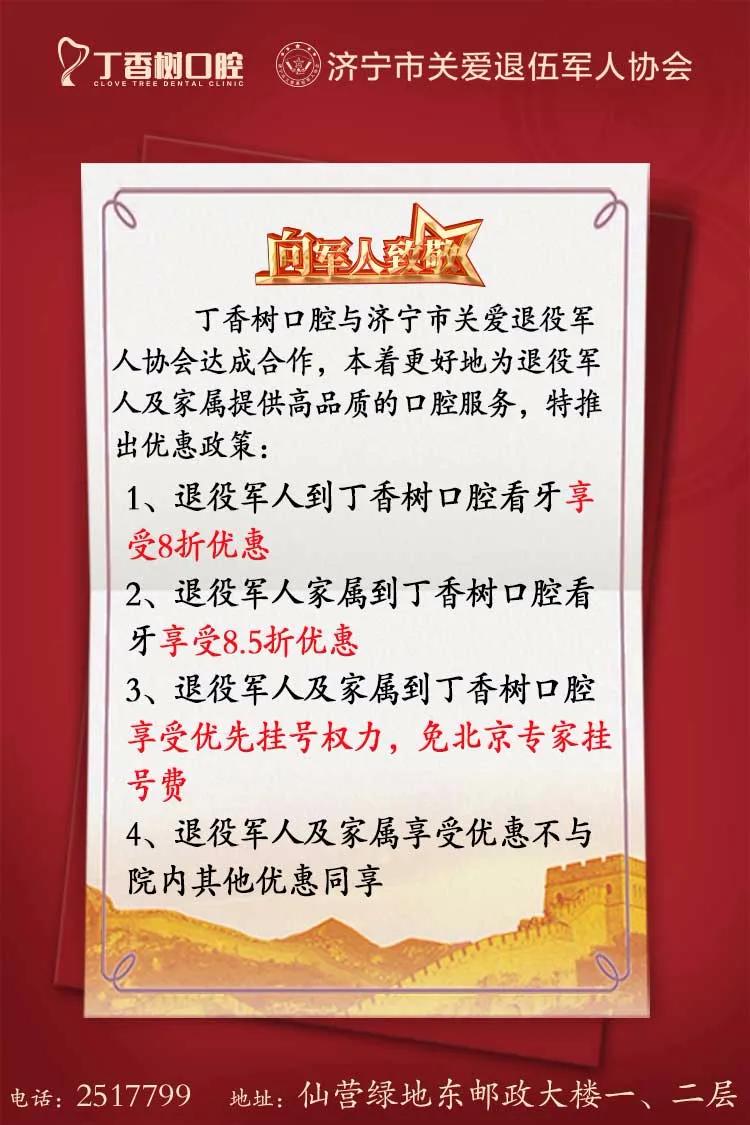 丁香树口腔
CLOVE TREE DENTAL CLINIC
济宁市关爱退伍军人协会
向军人致敬
丁香树口腔与济宁市关爱退役军
人协会达成合作，本着更好地为退役军
人及家属提供高品质的口腔服务，特推
出优惠政策：
1、退役军人到丁香树口腔看牙享
受8折优惠
2、退役军人家属到丁香树口腔看
牙享受8.5折优惠
3、退役军人及家属到丁香树口腔
享受优先挂号权力，免北京专家挂
号费
4、退役军人及家属享受优惠不与
院内其他优惠同享
电话：2517799 地址：仙营绿地东邮政大楼一、二层